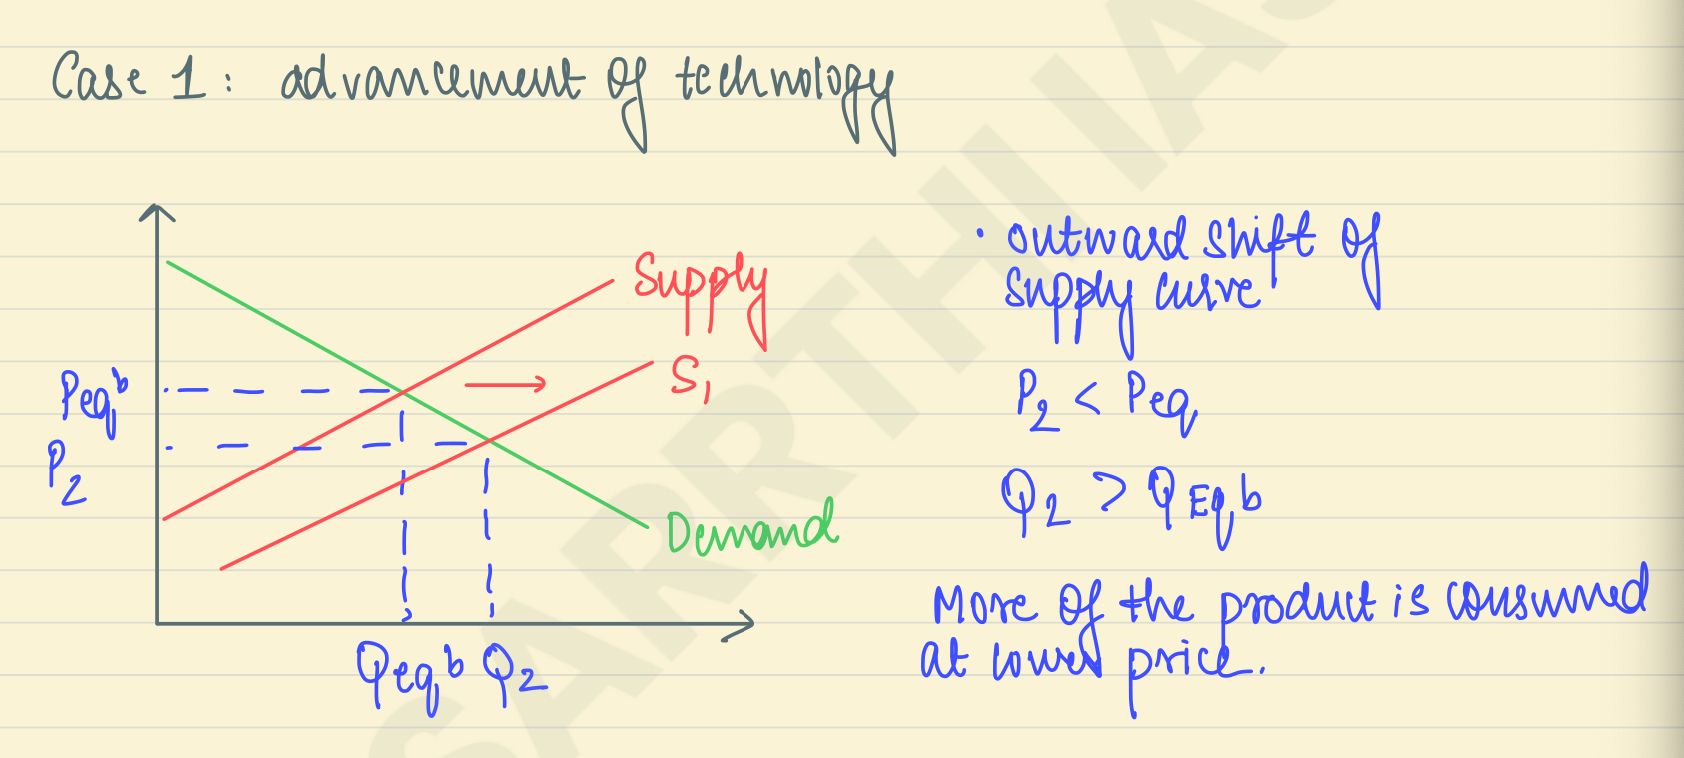 Case 1: advancement of technology
Supply
S1
Peqb
P2
Demand
Qeqb Q2
• outward shift of
supply curve
P2 < Peq
Q2 > QEqb
More of the product is consumed
at lower price.
SARRTHI IAS